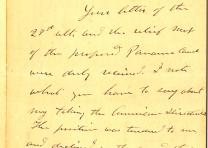 Your letter of the
28th ult. and the relief map
of the proposed Panama Canal
were duly received. I note
what you have to say about
my taking the American Directorship
The position was tendered to me
and declined